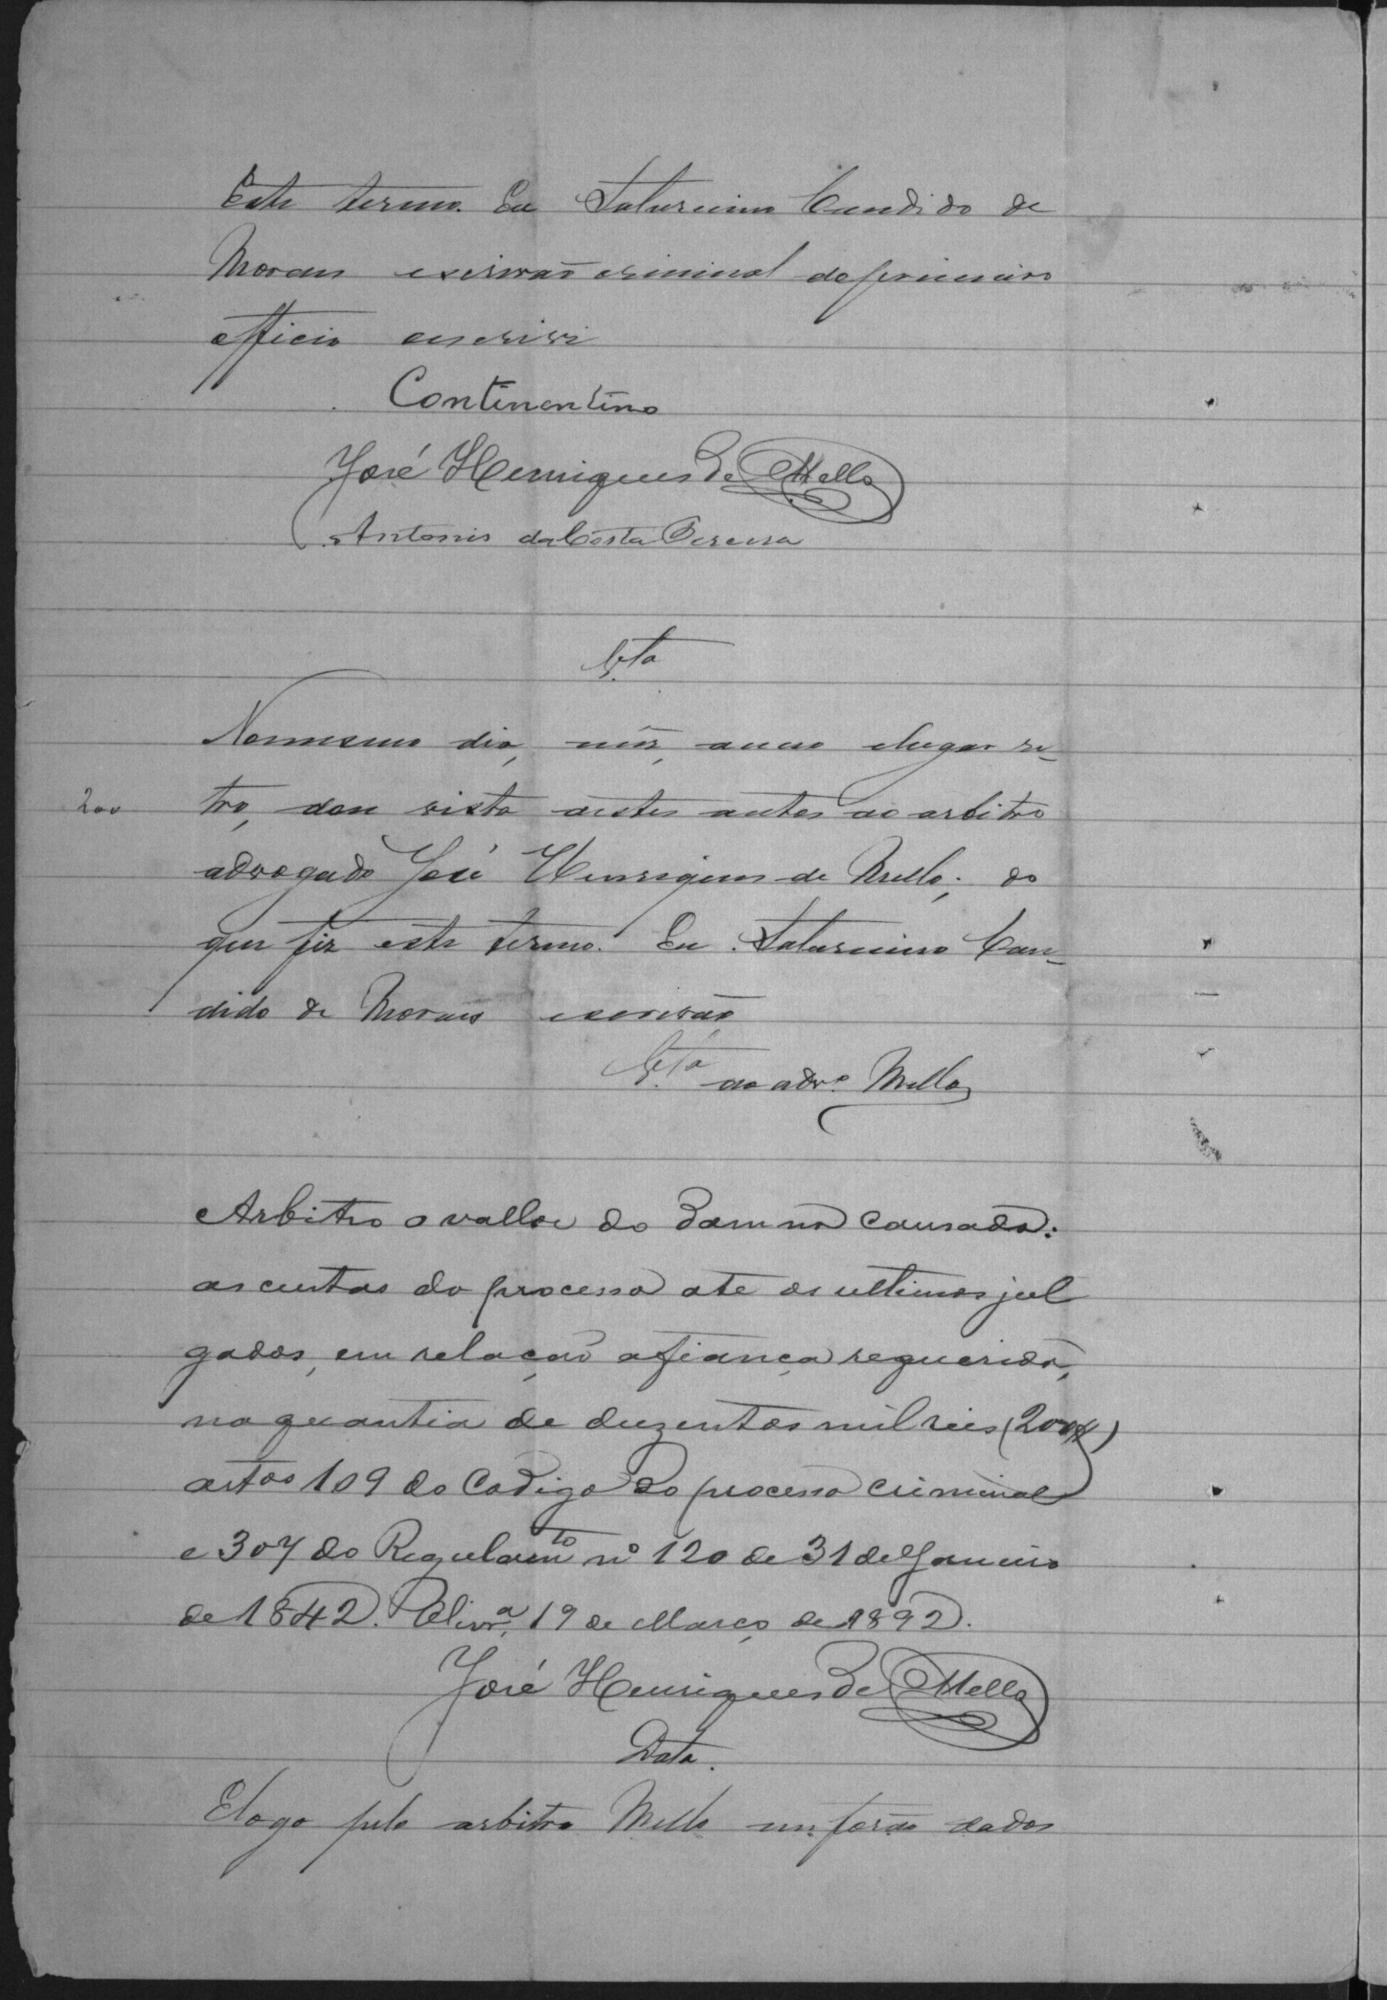 este termo. Eu Saturnino Candido de
Moraes escrivão criminal do primeiro
officio escrivi
Continentino
José Henriques de Mello
Antonio da Costa Pereira
V.ta
No mesmo dia, mês, anno e lugar re-
200 tro, dou vista destes autos ao arbitro
advogado José Henriques de Mello; do
que fiz este termo. Eu Saturnino Can-
dido de Moraes escrivão
V.ta ao adv.o Mello
Arbitro o vallor do damno causado:
as custas do processo até os ultimos jul
gados, em relação a fiança requerida,
na quantia de duzentos mil reis (200$)
artos 109 do Codigo do processo criminal
e 307 do Regulamto nº 120 de 31 de Janeiro
de 1842. Olivra, 19 de Março de 1892.
José Henriques de Mello
Data.
E logo pelo arbitro Mello me forão dados